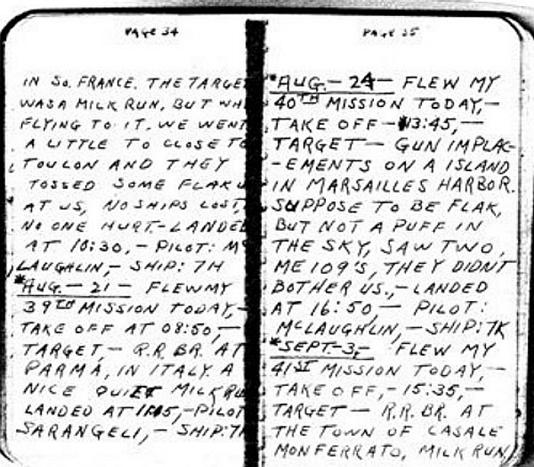 PAGE 34
IN SO. FRANCE. THE TARGET
WAS A MILK RUN, BUT
FLYING TO IT, WE WENT
A LITTLE TO CLOSE TO
TOULON AND THEY
TOSSED SOME FLAK
AT US, NO SHIPS LOST,
NO ONE HURT-LANDED
AT 10:30,- PILOT: Mc
LAUGHLIN,- SHIP: 7H
*AUG.- 21 - FLEW MY
39TH MISSION TODAY,-
TAKE OFF AT 08:50,-
TARGET,- R.R. BR. AT
PARMA, IN ITALY. A
NICE QUIET MILK RUN
LANDED AT -PILOT
SARANGELI,- SHIP:
PAGE 35
*AUG.- 24- FLEW MY
40TH MISSION TODAY,-
TAKE OFF-13:45,-
TARGET- GUN IMPLAC-
-EMENTS ON A ISLAND
IN MARSAILLES HARBOR.
SUPPOSE TO BE FLAK,
BUT NOT A PUFF IN
THE SKY, SAW TWO
ME 109'S, THEY DIDNT
BOTHER US,- LANDED
AT 16:50,- PILOT:
McLAUGHLIN,-SHIP:7K
*SEPT-3,- FLEW MY
41ST MISSION TODAY,-
TAKE OFF,-15:35,-
TARGET- R.R. BR. AT
THE TOWN OF CASALE
MONFERRATO, MILK RUN,